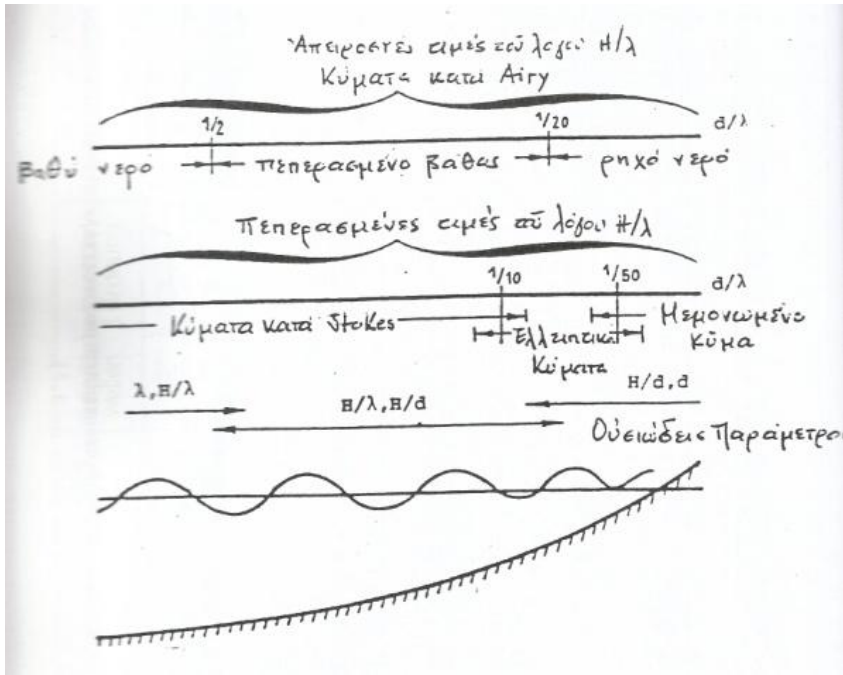 Ἀπειροστές τιμές τοῦ λόγου H/λ
Κύματα κατά Airy
1/2 1/20 d/λ
βαθύ νερό πεπερασμένο βάθος ρηχό νερό
Πεπερασμένες τιμές τοῦ λόγου H/λ
1/10 1/50 d/λ
Κύματα κατά Stokes Ἐλλειπτικά Κύματα Μεμονωμένο κῦμα
λ,H/λ H/λ,H/d H/d,d
Οὐσιώδεις Παράμετρο